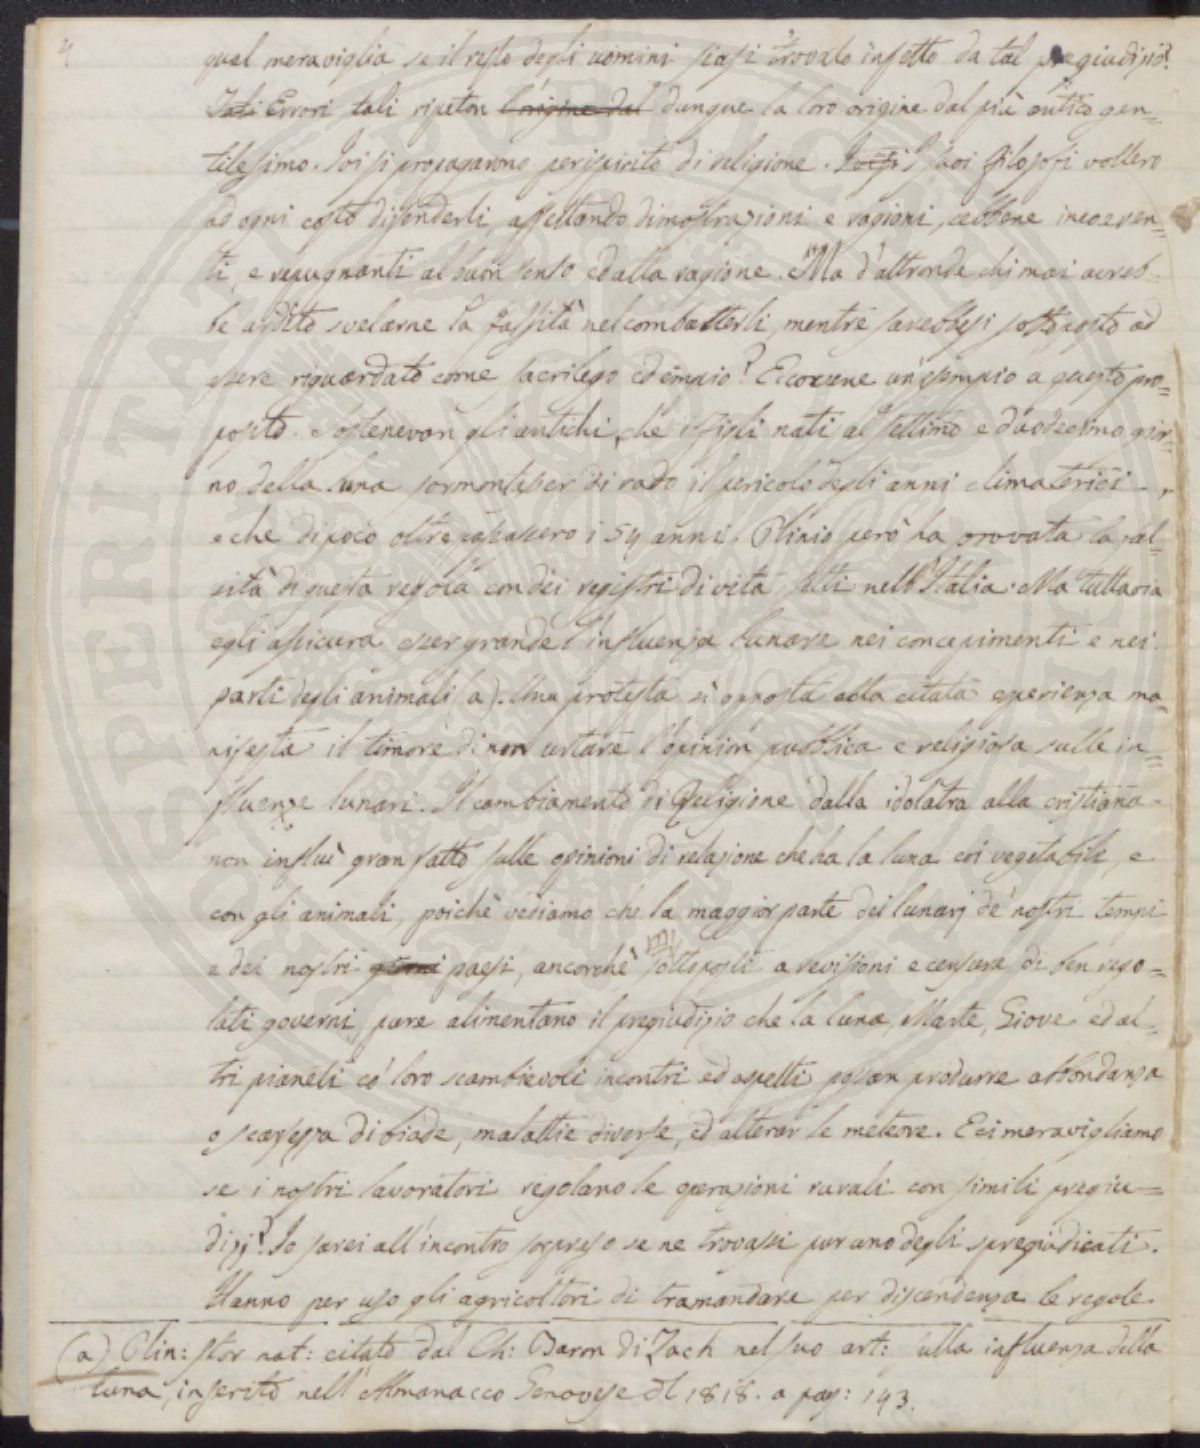 4
qual meraviglia se il resto degli uomini siasi trovato infetto da tal pregiudizio?
Tali Errori tali ripeton l'origine dal dunque la loro origine dal più antico gen=
tilesimo. Poi si propagarono per ispirito di religione. I suoi filosofi vollero
ad ogni costo difenderli, affettando dimostrazioni e ragioni, sebbene incoeren=
ti, e repugnanti al buon senso ed alla ragione. Ma d'altronde chi mai avreb=
be ardito svelarne la falsità nel combatterli, mentre sarebbesi sottoposto ad
essere riguardato come sacrilego ed empio? Eccovene un esempio a questo pro=
posito. Sostenevan gli antichi, che i figli nati al settimo e duodecimo gior=
no della luna sormontasser di rado il pericolo degli anni climaterici,
e che di poco oltrepassassero i 54 anni. Plinio però ha provata la fal=
sità di questa regola con dei registri di vita fatti nell'Italia. Ma tuttavia
egli assicura esser grande l'influenza lunare nei concepimenti e nei
parti degli animali (a). Una protesta sì opposta alla citata esperienza ma=
nifesta il timore di non urtare l'opinion pubblica e religiosa sulle in=
fluenze lunari. Il cambiamento di Religione dalla idolatra alla cristiana
non influì gran fatto sulle opinioni di relazione che ha la luna coi vegetabili, e
con gli animali, poichè vediamo che la maggior parte dei lunarj de' nostri tempi
e dei nostri giorni paesi, ancorchè sottoposti a revisioni e censure di ben rego=
lati governi, pure alimentano il pregiudizio che la luna, Marte, Giove ed al=
tri pianeti co' loro scambievoli incontri ed aspetti possan produrre abbondanza
o scarsezza di biade, malattie diverse, ed alterar le meteore. E ci meravigliamo
se i nostri lavoratori regolano le operazioni rurali con simili pregiu=
dizj? Io sarei all'incontro sorpreso se ne trovassi pur uno degli spregiudicati.
Hanno per uso gli agricoltori di tramandare per discendenza le regole
(a) Plin: stor nat: citato dal Ch: Baron di Zach nel suo art: sulla influenza della
luna, inserito nell'Almanacco Genovese dl 1818. a pag: 143.